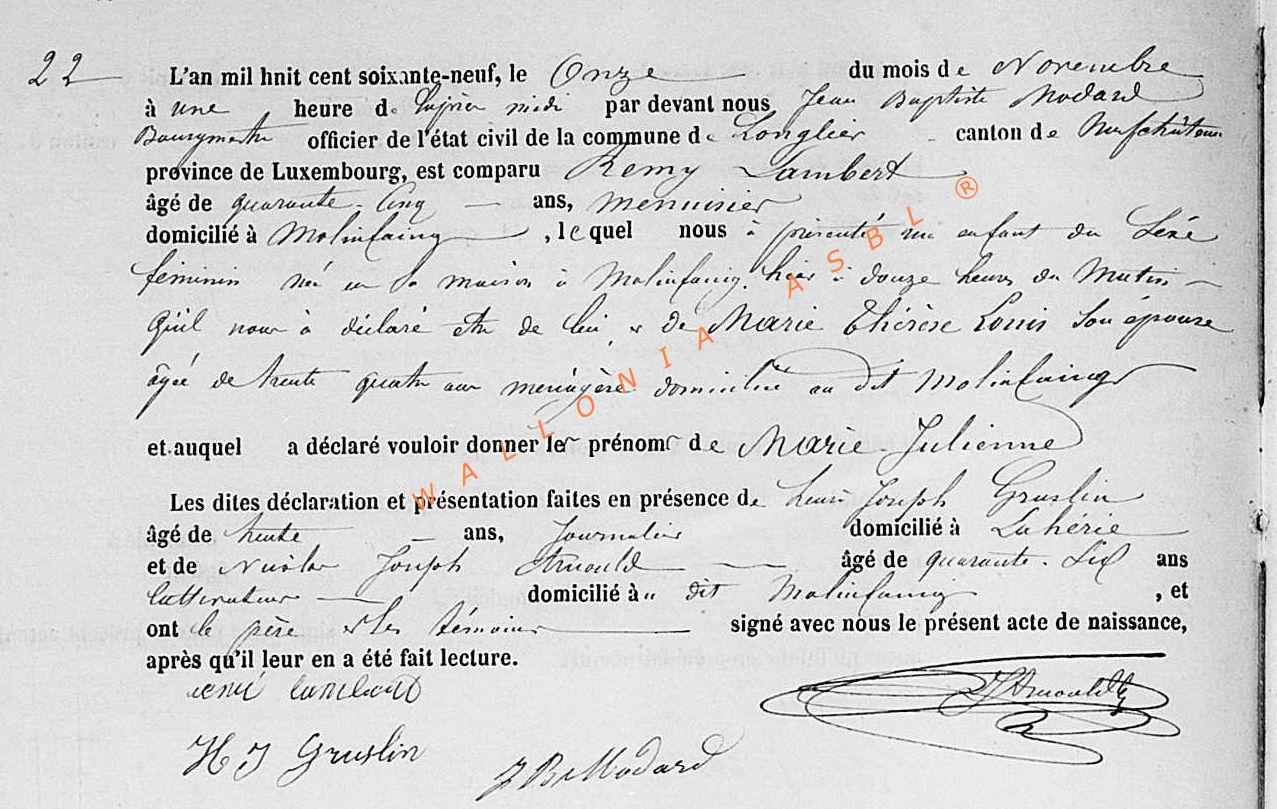 22 L'an mil hnit cent soixante-neuf, le Onze du mois de Novembre
à une heure d' après midi par devant nous Jean Baptiste Modard
Bourgmestre officier de l'état civil de la commune de Longlier canton de Neufchâteau
province de Luxembourg, est comparu Remy Lambert
âgé de quarante-Cinq ans, menuisier
domicilié à Molinfaing, lequel nous à présenté un enfant du Séxé
féminin né en sa maison à Molinfaing, hier à douze heures du Matin
Qu'il nous à déclaré être de lui et de Marie Thérèse Louis Son épouse
âgée de trente quatre ans menagère domiciliée au dit Molinfaing
et auquel a déclaré vouloir donner les prénoms de Marie-Julienne
Les dites déclaration et présentation faites en présence de Henri Joseph Gruslin
âgé de trente ans, Journalier domicilié à Lahérie
et de Nicolas Joseph Arnould âgé de quarante-Six ans
Cultivateur domicilié à dit Molinfaing, et
ont le père et les témoins signé avec nous le présent acte de naissance,
après qu'il leur en a été fait lecture.
remi lambert
J Arnould
H J Gruslin
J B Modard
WALLONIA ASBL ®